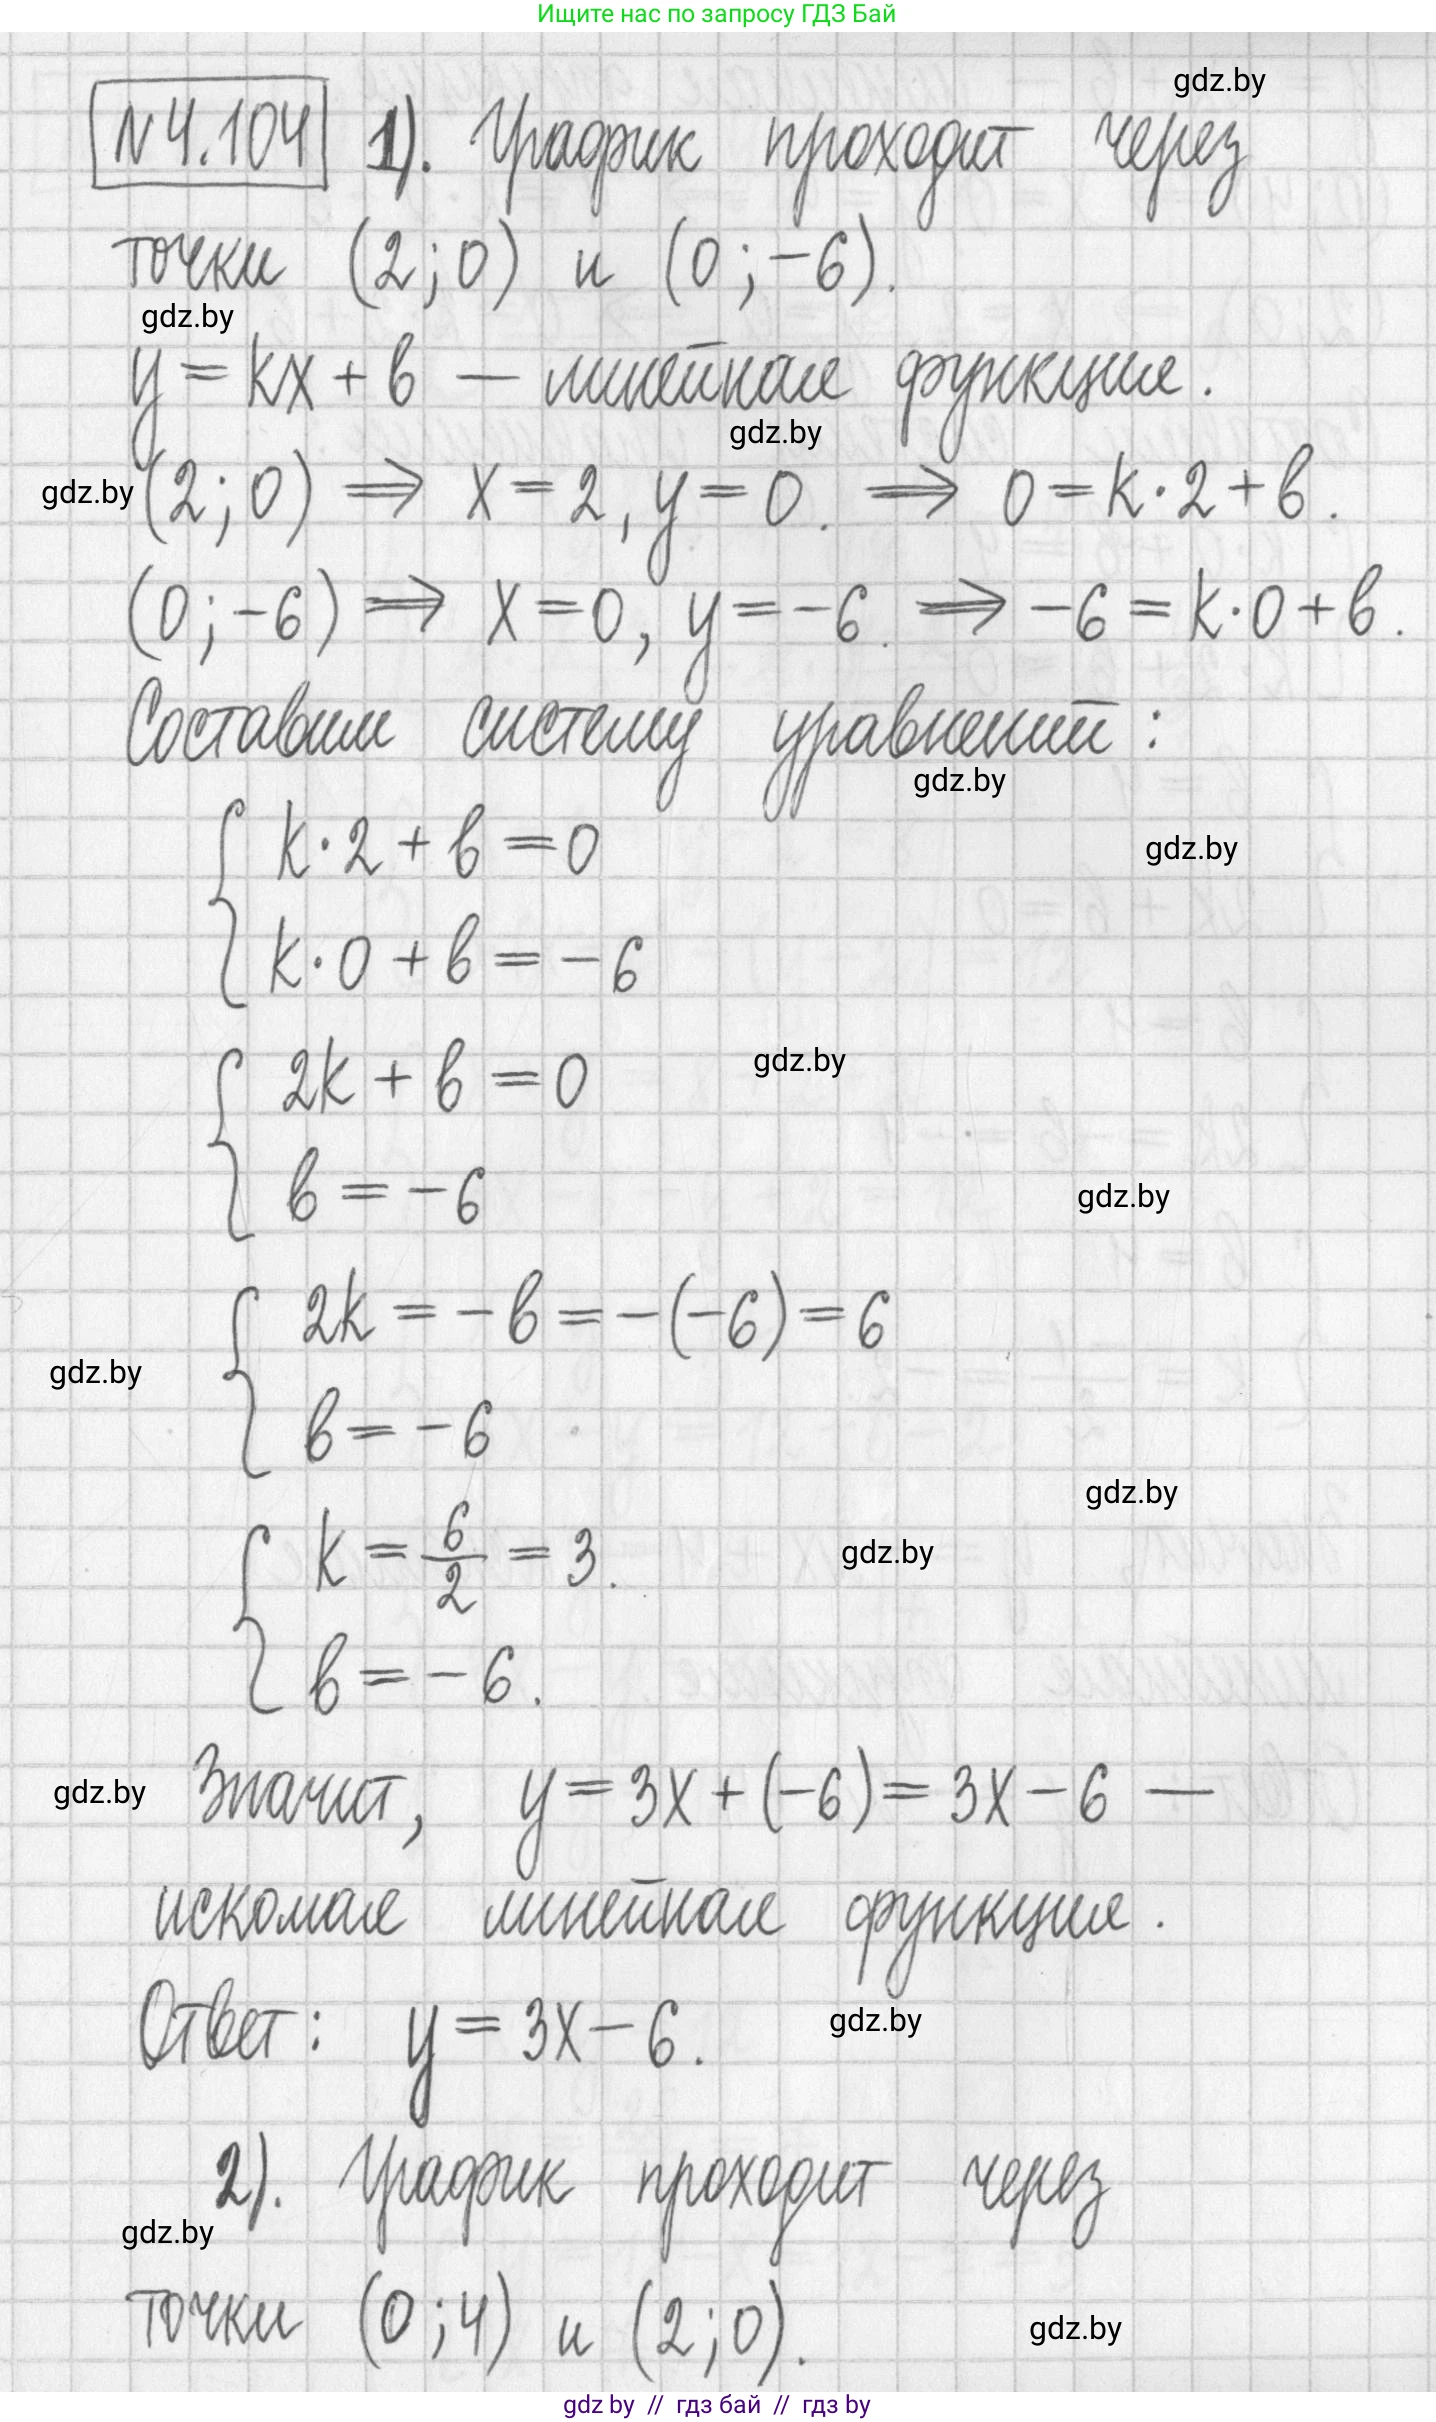 Ищите нас по запросу ГДЗ Бай
gdz.by
№4.104 1). График проходит через
точки (2;0) и (0;-6).
gdz.by
y = kx + b — линейная функция.
gdz.by
gdz.by (2;0) ⇒ x = 2, y = 0. ⇒ 0 = k·2 + b.
(0;-6) ⇒ x = 0, y = -6. ⇒ -6 = k·0 + b.
Составим систему уравнений:
gdz.by
{ k·2 + b = 0
gdz.by
k·0 + b = -6
{ 2k + b = 0
gdz.by
b = -6
gdz.by
{ 2k = -b = -(-6) = 6
gdz.by
b = -6
gdz.by
{ k = 6/2 = 3.
gdz.by
b = -6.
gdz.by Значит, y = 3x + (-6) = 3x - 6 —
искомая линейная функция.
Ответ: y = 3x - 6.
gdz.by
2). График проходит через
gdz.by
точки (0;4) и (2;0).
gdz.by
gdz by // гдз бай // гдз by